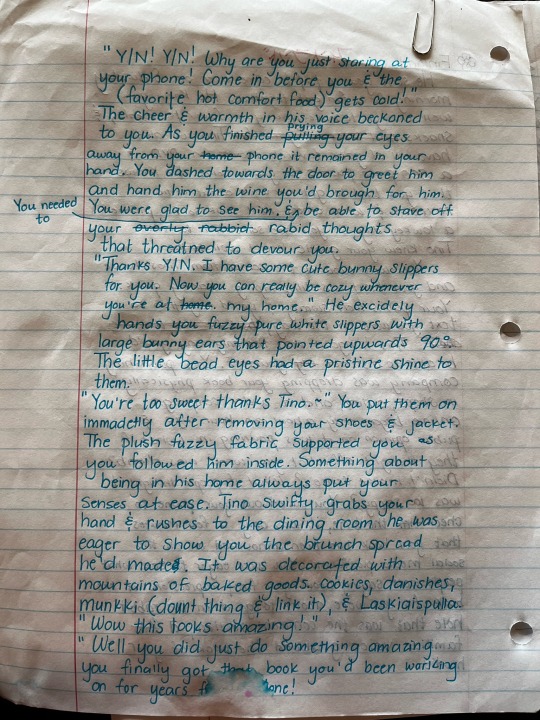 "Y/N! Y/N! Why are you just staring at
your phone! Come in before you & the
(favorite hot comfort food) gets cold!"
The cheer & warmth in his voice beckoned
to you. As you finished pulling prying your eyes
away from your home phone it remained in your
hand. You dashed towards the door to greet him
and hand him the wine you'd brough for him.
You were glad to see him. & You needed to be able to stave off
your overly rabbid rabid thoughts
that threatned to devour you.
"Thanks Y/N. I have some cute bunny slippers
for you. Now you can really be cozy whenever
you're at home. my home." He excidely
hands you fuzzy pure white slippers with
large bunny ears that pointed upwards 90°.
The little bead eyes had a pristine shine to
them.
"You're too sweet thanks Tino.~" You put them on
immadetly after removing your shoes & jacket.
The plush fuzzy fabric supported you as
you followed him inside. Something about
being in his home always put your
senses at ease. Tino swifty grabs your
hand & rushes to the dining room he was
eager to show you the brunch spread
he'd made. It was decorated with
mountains of baked goods. cookies, danishes,
munkki (dount thing & link it), & Laskiaispulla.
"Wow this looks amazing!"
"Well you did just do something amazing
you finally got that book you'd been working
on for years